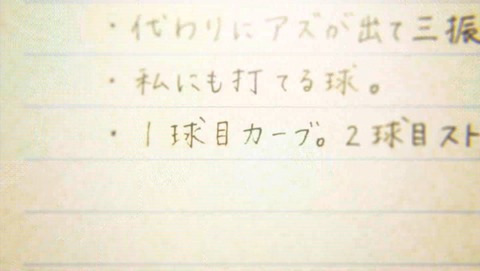 ・代わりにアズが出て三振
・私にも打てる球。
・1球目カーブ。2球目スト